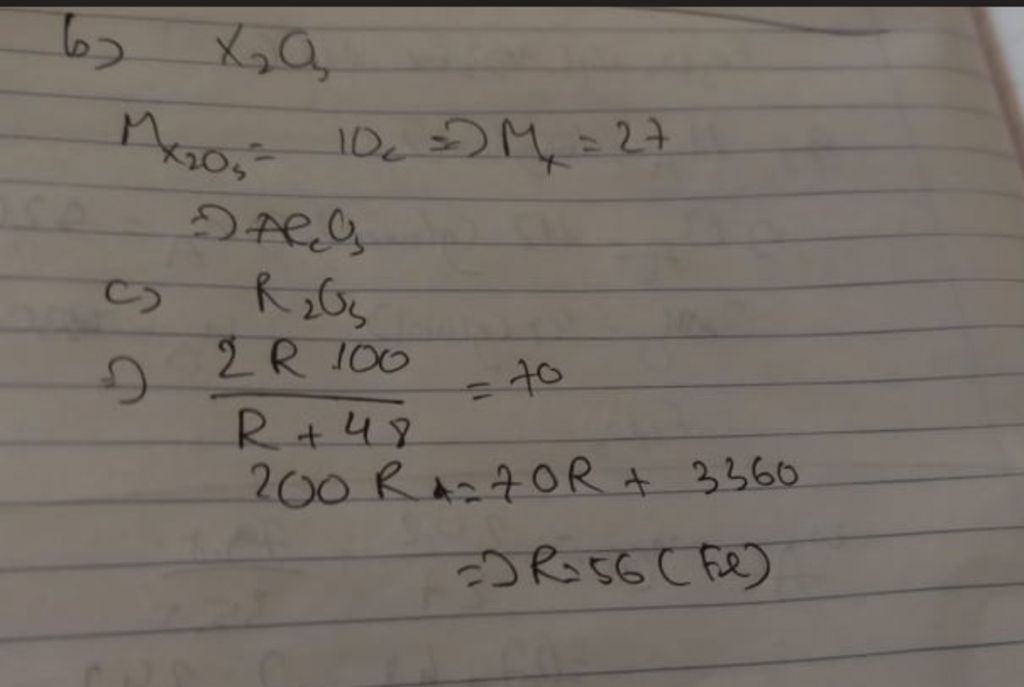 b) X₂O₃
M_X₂O₃ = 102 => M_X = 27
=> Al₂O₃
c) R₂O₃
=> 2R 100 / R + 48 = 70
200R = 70R + 3360
=> R = 56 (Fe)